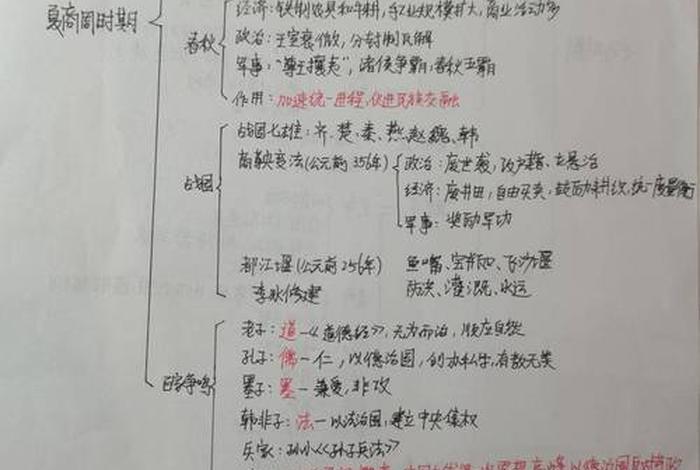 夏商周时期
春秋
经济：铁制农具和牛耕，手工业规模扩大，商业活动多
政治：王室衰微，分封制瓦解
军事："尊王攘夷"，诸侯争霸，春秋五霸
作用：加速统一进程，促进民族交融
战国
战国七雄：齐、楚、秦、燕、赵、魏、韩
商鞅变法(公元前356年)
政治：废世袭，改户籍、立县治
经济：废井田，自由买卖，鼓励耕织，统一度量衡
军事：奖励军功
都江堰(公元前256年)
李冰修建
鱼嘴、宝瓶口、飞沙堰
防洪、灌溉、水运
百家争鸣
老子：道—《道德经》，无为而治，顺应自然
孔子：儒—仁，以德治国，创办私学，有教无类
墨子：墨—兼爱，非攻
韩非子：法—以法治国，建立中央集权
兵家：孙《孙子兵法》